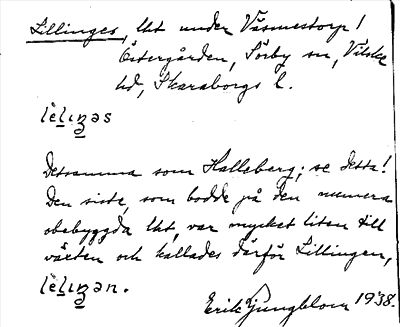 Lillinges, lht under Väsmestorp /
Östergården, Sörby sn, Vilske
hd, Skaraborgs l.
lèlıŋəs
Detsamma som Halleberg; se detta!
Den siste, som bodde på den numera
obebyggda lht, var mycket liten till
växten och kallades därför Lillingen,
lèlıŋən.
Erik Ljungblom 1938.